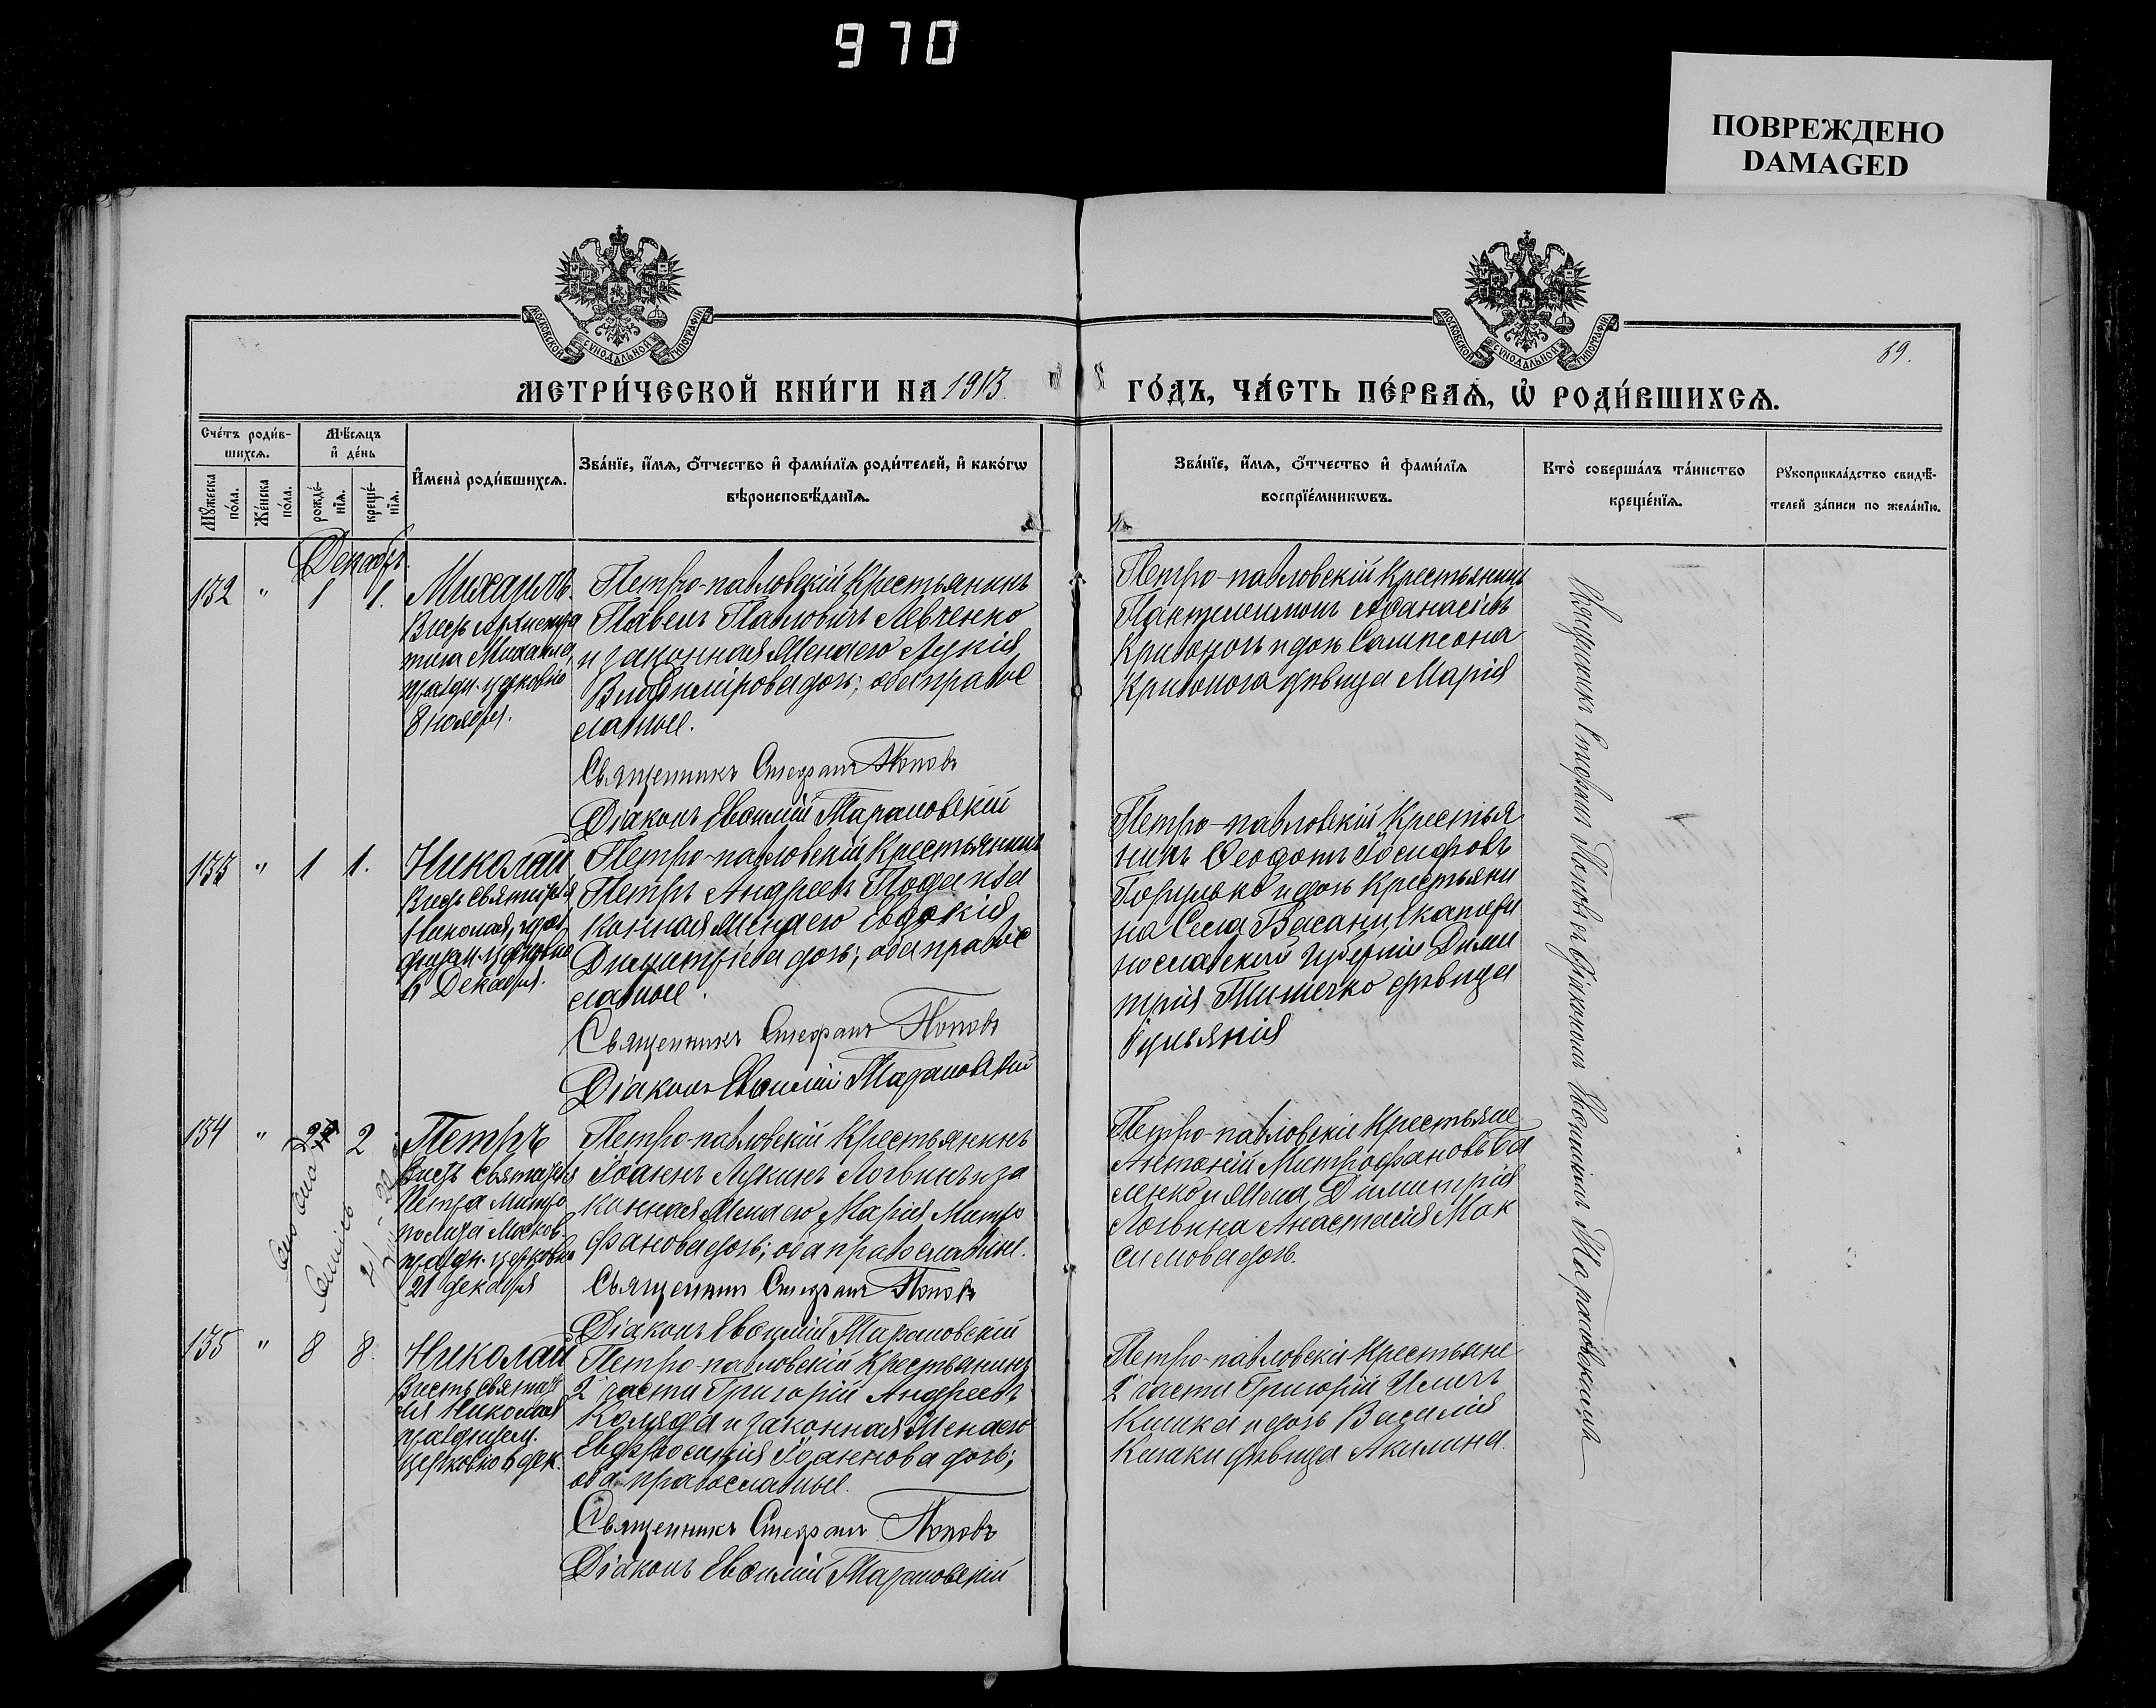 970
ПОВРЕЖДЕНО
DAMAGED
МОСКОВСКОЙ СѴНОДАЛЬНОЙ ТИПОГРАФІИ
МОСКОВСКОЙ СѴНОДАЛЬНОЙ ТИПОГРАФІИ
69.
МЕТРИ́ЧЕСКОЙ КНИ́ГИ НА 1913
ГО́ДЪ, ЧА́СТЬ ПЕ́РВАѦ, Ѿ РОДИ́ВШИХСѦ.
Сче́тъ роди́в-
шихсѧ.
Мѣ́сѧцъ
и҆ де́нь
Мꙋ́жеска
по́ла.
Же́нска
по́ла.
рожде́-
нїѧ.
креще́-
нїѧ.
И҆мена̀ роди́вшихсѧ.
Зва́нїе, и҆́мѧ, ѻ҆́тчество и҆ фами́лїѧ роди́телей, и҆ како́гѡ
вѣроисповѣ́данїѧ.
Зва́нїе, и҆́мѧ, ѻ҆́тчество и҆ фами́лїѧ
воспрїе́мникѡвъ.
Кто̀ соверша́лъ та́инство
креще́нїѧ.
Рꙋкоприкла́дство свидѣ́-
телей за́писи по жела́нїю.
Декабрь
132 " 1 1.
Михаилъ
Въ честь Архистра
тига Михаила,
праздн. церковью
8 ноября.
Петро-павловскій Крестьянинъ
Павелъ Павловичъ Левченко
и законная жена его Лукія
Владиміровна дочь; оба правос
лавные.
Священникъ Стефанъ Поповъ
Діаконъ Евѳимій Тарановскій
Петро-павловскій Крестьянинъ
Пантелеимонъ Аѳанасіевъ
Кривоногъ и дочь Сампсона
Кривонога дѣвица Марія
133 " 1 1.
Николай
Въ честь Святителя
Николая,
церковью
6 Декабря.
Петро-павловскій Крестьянинъ
Петръ Андреевъ
конная жена его Евдокія
Димитріева дочь; оба правос
лавные.
Священникъ Стефанъ Поповъ
Діаконъ Евѳимій Тарановскій
Петро-павловскій Крестья
нинъ Ѳеодотъ Іосифовъ
и дочь крестьяни
на Села Васани Екатери
нославской губерніи Дими
трія Тимечко дѣвица
Іуліанія
134 " 2
Петръ
Въ честь Святителя
Петра Митро
полита Москов.
праздн. церковью
21 декабря
Петро-павловскій Крестьянинъ
Іоаннъ Лукинъ Логвинъ и за
конная жена его Марія Митро
фанова дочь; оба православные.
Священникъ Стефанъ Поповъ
Діаконъ Евѳимій Тарановскій
Петро-павловскіе Крестьяне
Антоній Митрофановъ Ба
ленко и жена Димитрія
Логвина Анастасія Мак
симова дочь.
135 " 8 8.
Николай
Въ честь Святите
ля Николая
празднуем.
церковью 6 дек.
Петро-павловскій Крестьянинъ
2 части Григорій Андреевъ
Коляда и законная жена его
Евфросинія Іоаннова дочь;
оба православные.
Священникъ Стефанъ Поповъ
Діаконъ Евѳимій Тарановскій
Петро-павловскіе Крестьяне
2 части Григорій Ильичъ
Кишка и дочь Василія
Кишки дѣвица Акилина.
Священникъ Стефанъ Поповъ съ діакономъ Евѳиміемъ Тарановскимъ